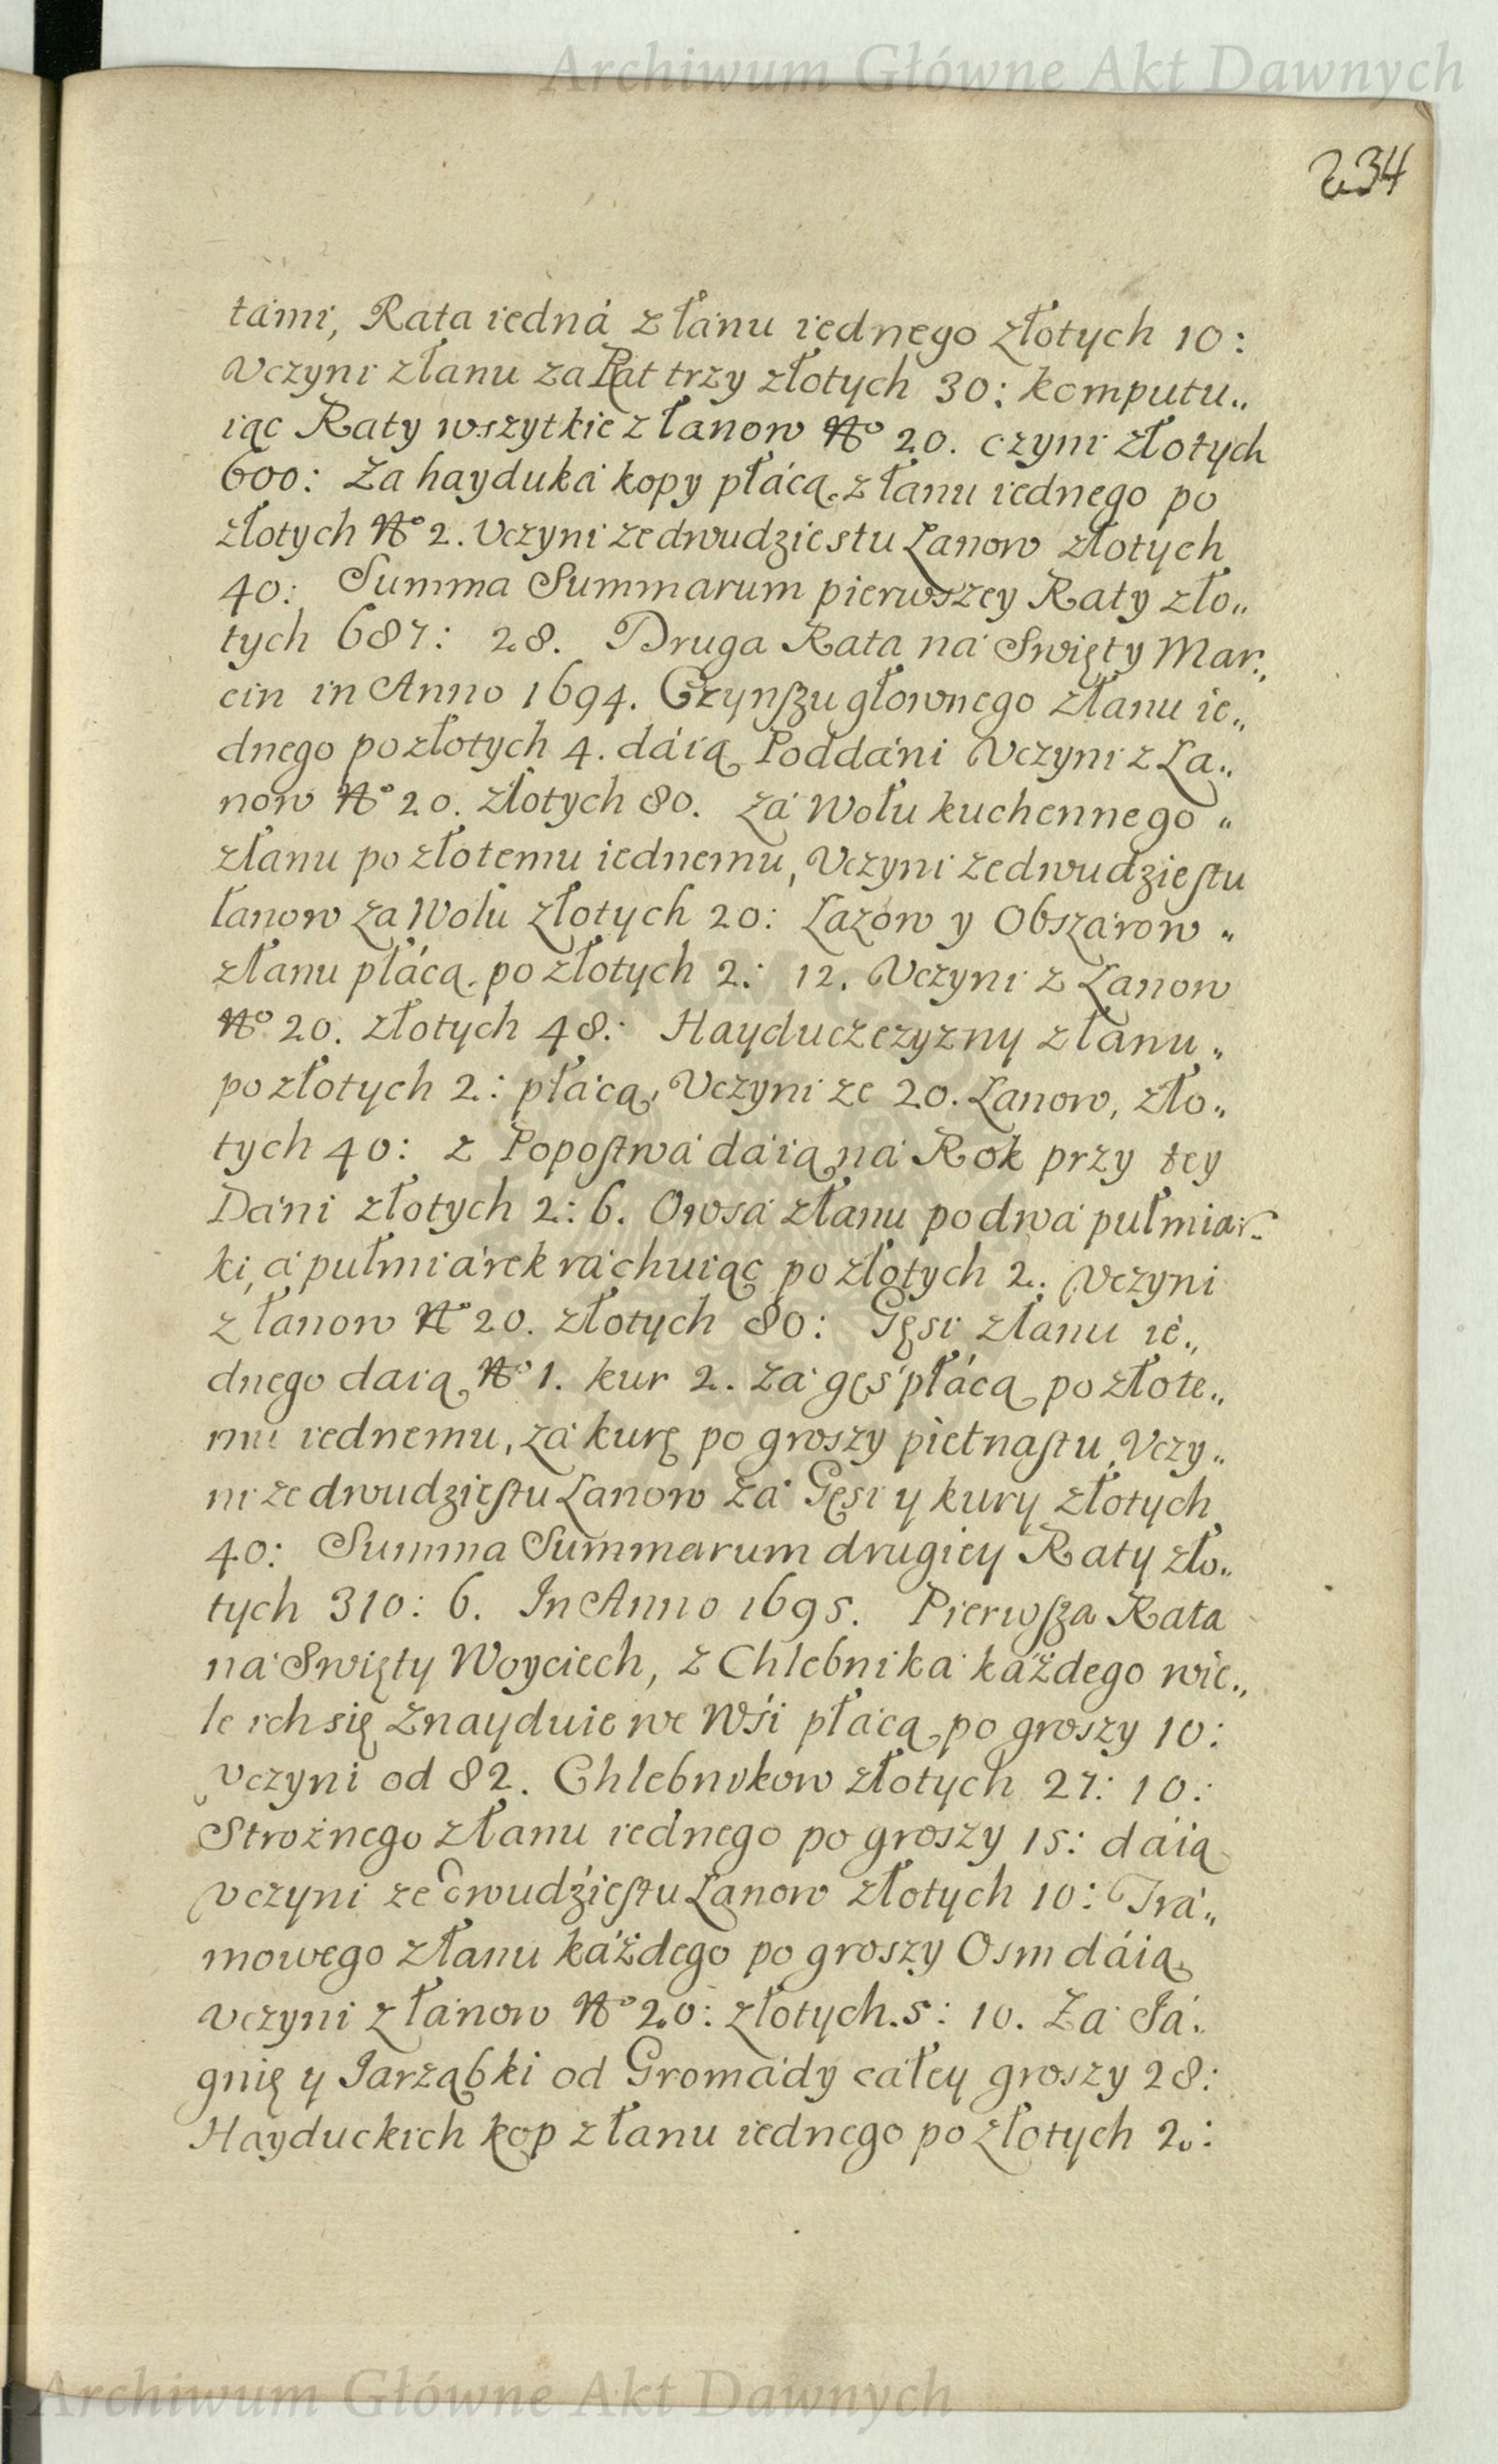 Archiwum Główne Akt Dawnych
234
támi, Rata iedná z łánu iednego złotych 10:
Vczyni złanu za Rat trzy złotych 30: komputu„
iąc Raty wszytkie z łanow No 20. czyni złotych
600: Za hayduká kopy płácą z łanu iednego po
złotych No 2. Vczyni ze dwudziestu Łanow złotych
40: Summa Summarum pierwszey Raty zło„
tych 687: 28. Druga Rata ná Swięty Mar„
cin in Anno 1694. Czynſzu głownego złanu ie„
dnego po złotych 4. dáią Poddáni Vczyni z Ła„
now No 20. złotych 80. Zá Wołu kuchennego „
złanu po złotemu iednemu, Vczyni ze dwudzieſtu
łanow za Wołu złotych 20: Łazow y Obszárow „
złanu płácą po złotych 2: 12. Vczyni z Łanow
No 20. złotych 48: Hayduczczyzny z łanu „
po złotych 2: płácą, Vczyni ze 20. Łanow, zło„
tych 40: z Popoſtwá dáią ná Rok przy tey
Dáni złotych 2: 6. Owsá złanu po dwá pułmiar„
ki, á pułmiárek ráchuiąc po złotych 2. Vczyni
z łanow No 20. złotych 80: Gęsi złanu ie„
dnego daią No 1. kur 2. zá gęś płácą po złote„
mu iednemu, zá kurę po groszy pietnaſtu Vczy„
ni ze dwudzieſtu Łanow zá Gęsi y kury złotych
40: Summa Summarum drugiey Raty zło„
tych 310: 6. In Anno 1695. Pierwſza Rata
ná Swięty Woyciech, z Chlebniká káżdego wie„
le ich się znayduie we Wśi płácą po groszy 10:
Vczyni od 82. Chlebnikow złotych 27: 10:
Strożnego złanu iednego po groszy 15: dáią
Vczyni ze dwudźieſtu Łanow złotych 10: Trá„
mowego złanu káżdego po groszy Osm dáią
Vczyni z łánow No 20: złotych. 5: 10. Zá Já„
gnię y Jarząbki od Gromády całey groszy 28:
Hayduckich kop z łanu iednego po złotych 2:
Archiwum Główne Akt Dawnych